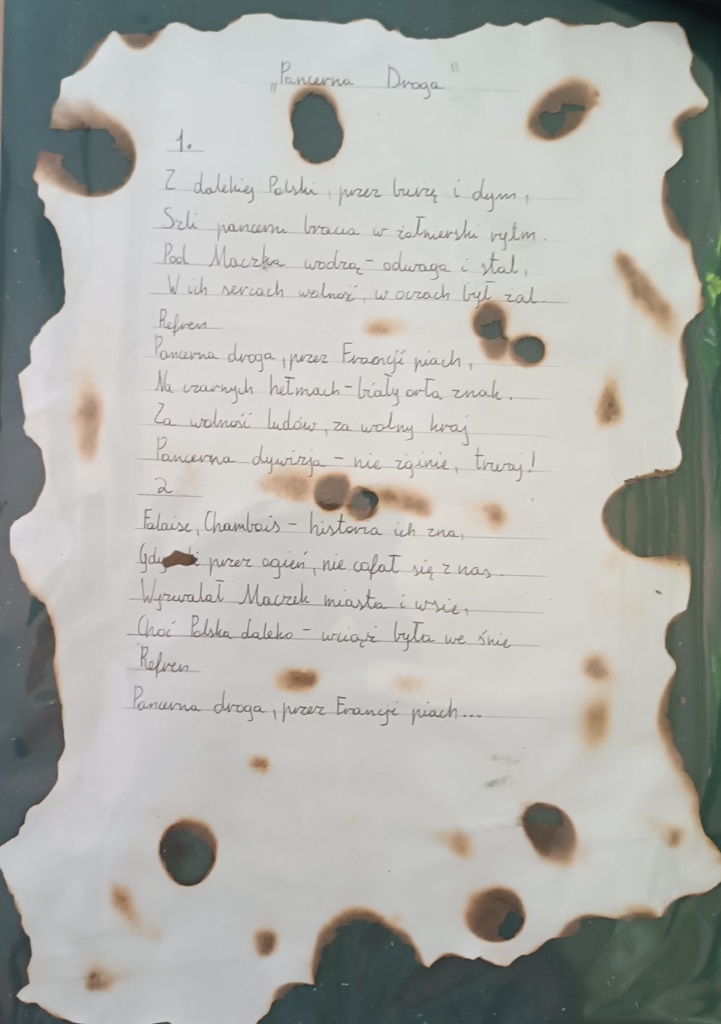 „Pancerna Droga"
1.
Z dalekiej Polski, przez burzę i dym,
Szli pancerni bracia w żołnierski rytm.
Pod Maczka wodzą - odwaga i stal,
W ich sercach wolność, w oczach był żal.
Refren
Pancerna droga, przez Francji piach,
Na czarnych hełmach - biały orła znak.
Za wolność ludów, za wolny kraj
Pancerna dywizja - nie zginie, trwaj!
2
Falaise, Chambois - historia ich zna,
przez ogień, nie cofał się z nas.
Wyzwalał Maczek miasta i wsie,
Choć Polska daleko - wciąż była we śnie
Refren
Pancerna droga, przez Francji piach...